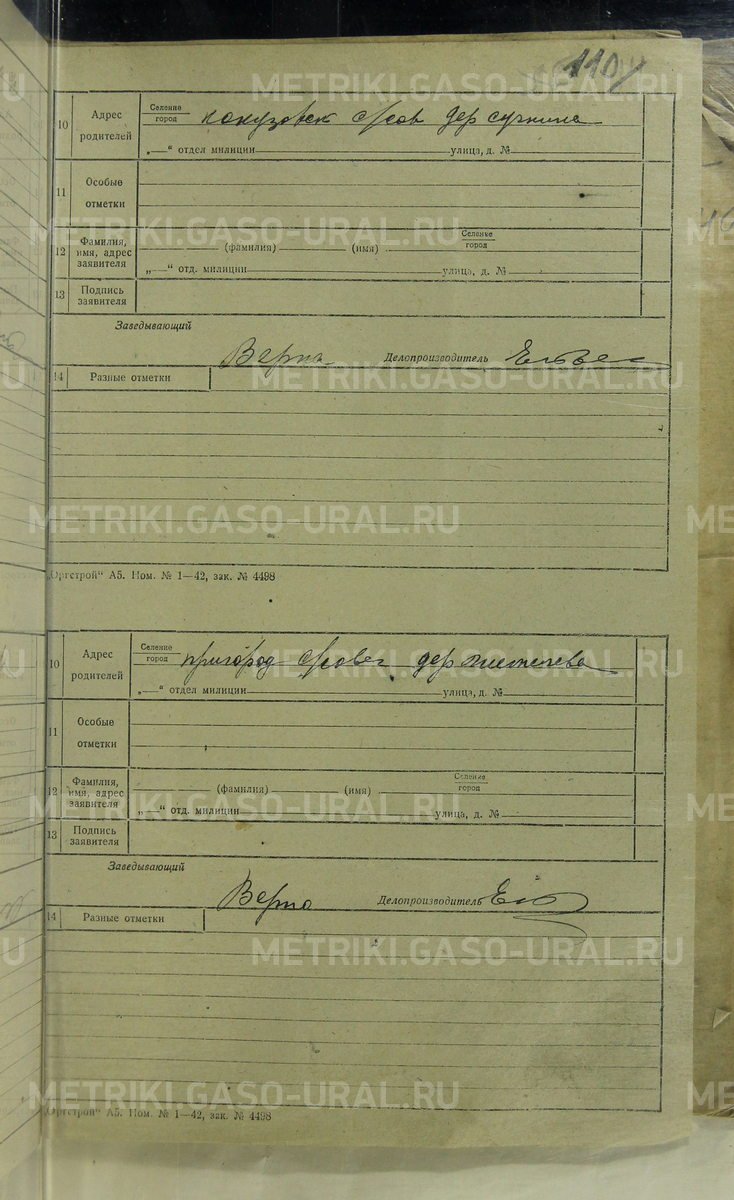 110
10 Адрес родителей Селение город с/сов дер
„—“ отдел милиции улица, д. №
11 Особые отметки
12 Фамилия, имя, адрес заявителя (фамилия) (имя) Селение город
„—“ отд. милиции улица, д. №
13 Подпись заявителя
Заведывающий
Верно Делопроизводитель
14 Разные отметки
„Оргстрой“ А5. Пом. № 1—42, зак. № 4498
10 Адрес родителей Селение город пригород с/совет дер
„—“ отдел милиции улица, д. №
11 Особые отметки
12 Фамилия, имя, адрес заявителя (фамилия) (имя) Селение город
„—“ отд. милиции улица, д. №
13 Подпись заявителя
Заведывающий
Верно Делопроизводитель
14 Разные отметки
„Оргстрой“ А5. Пом. № 1—42, зак. № 4498
METRIKI.GASO-URAL.RU